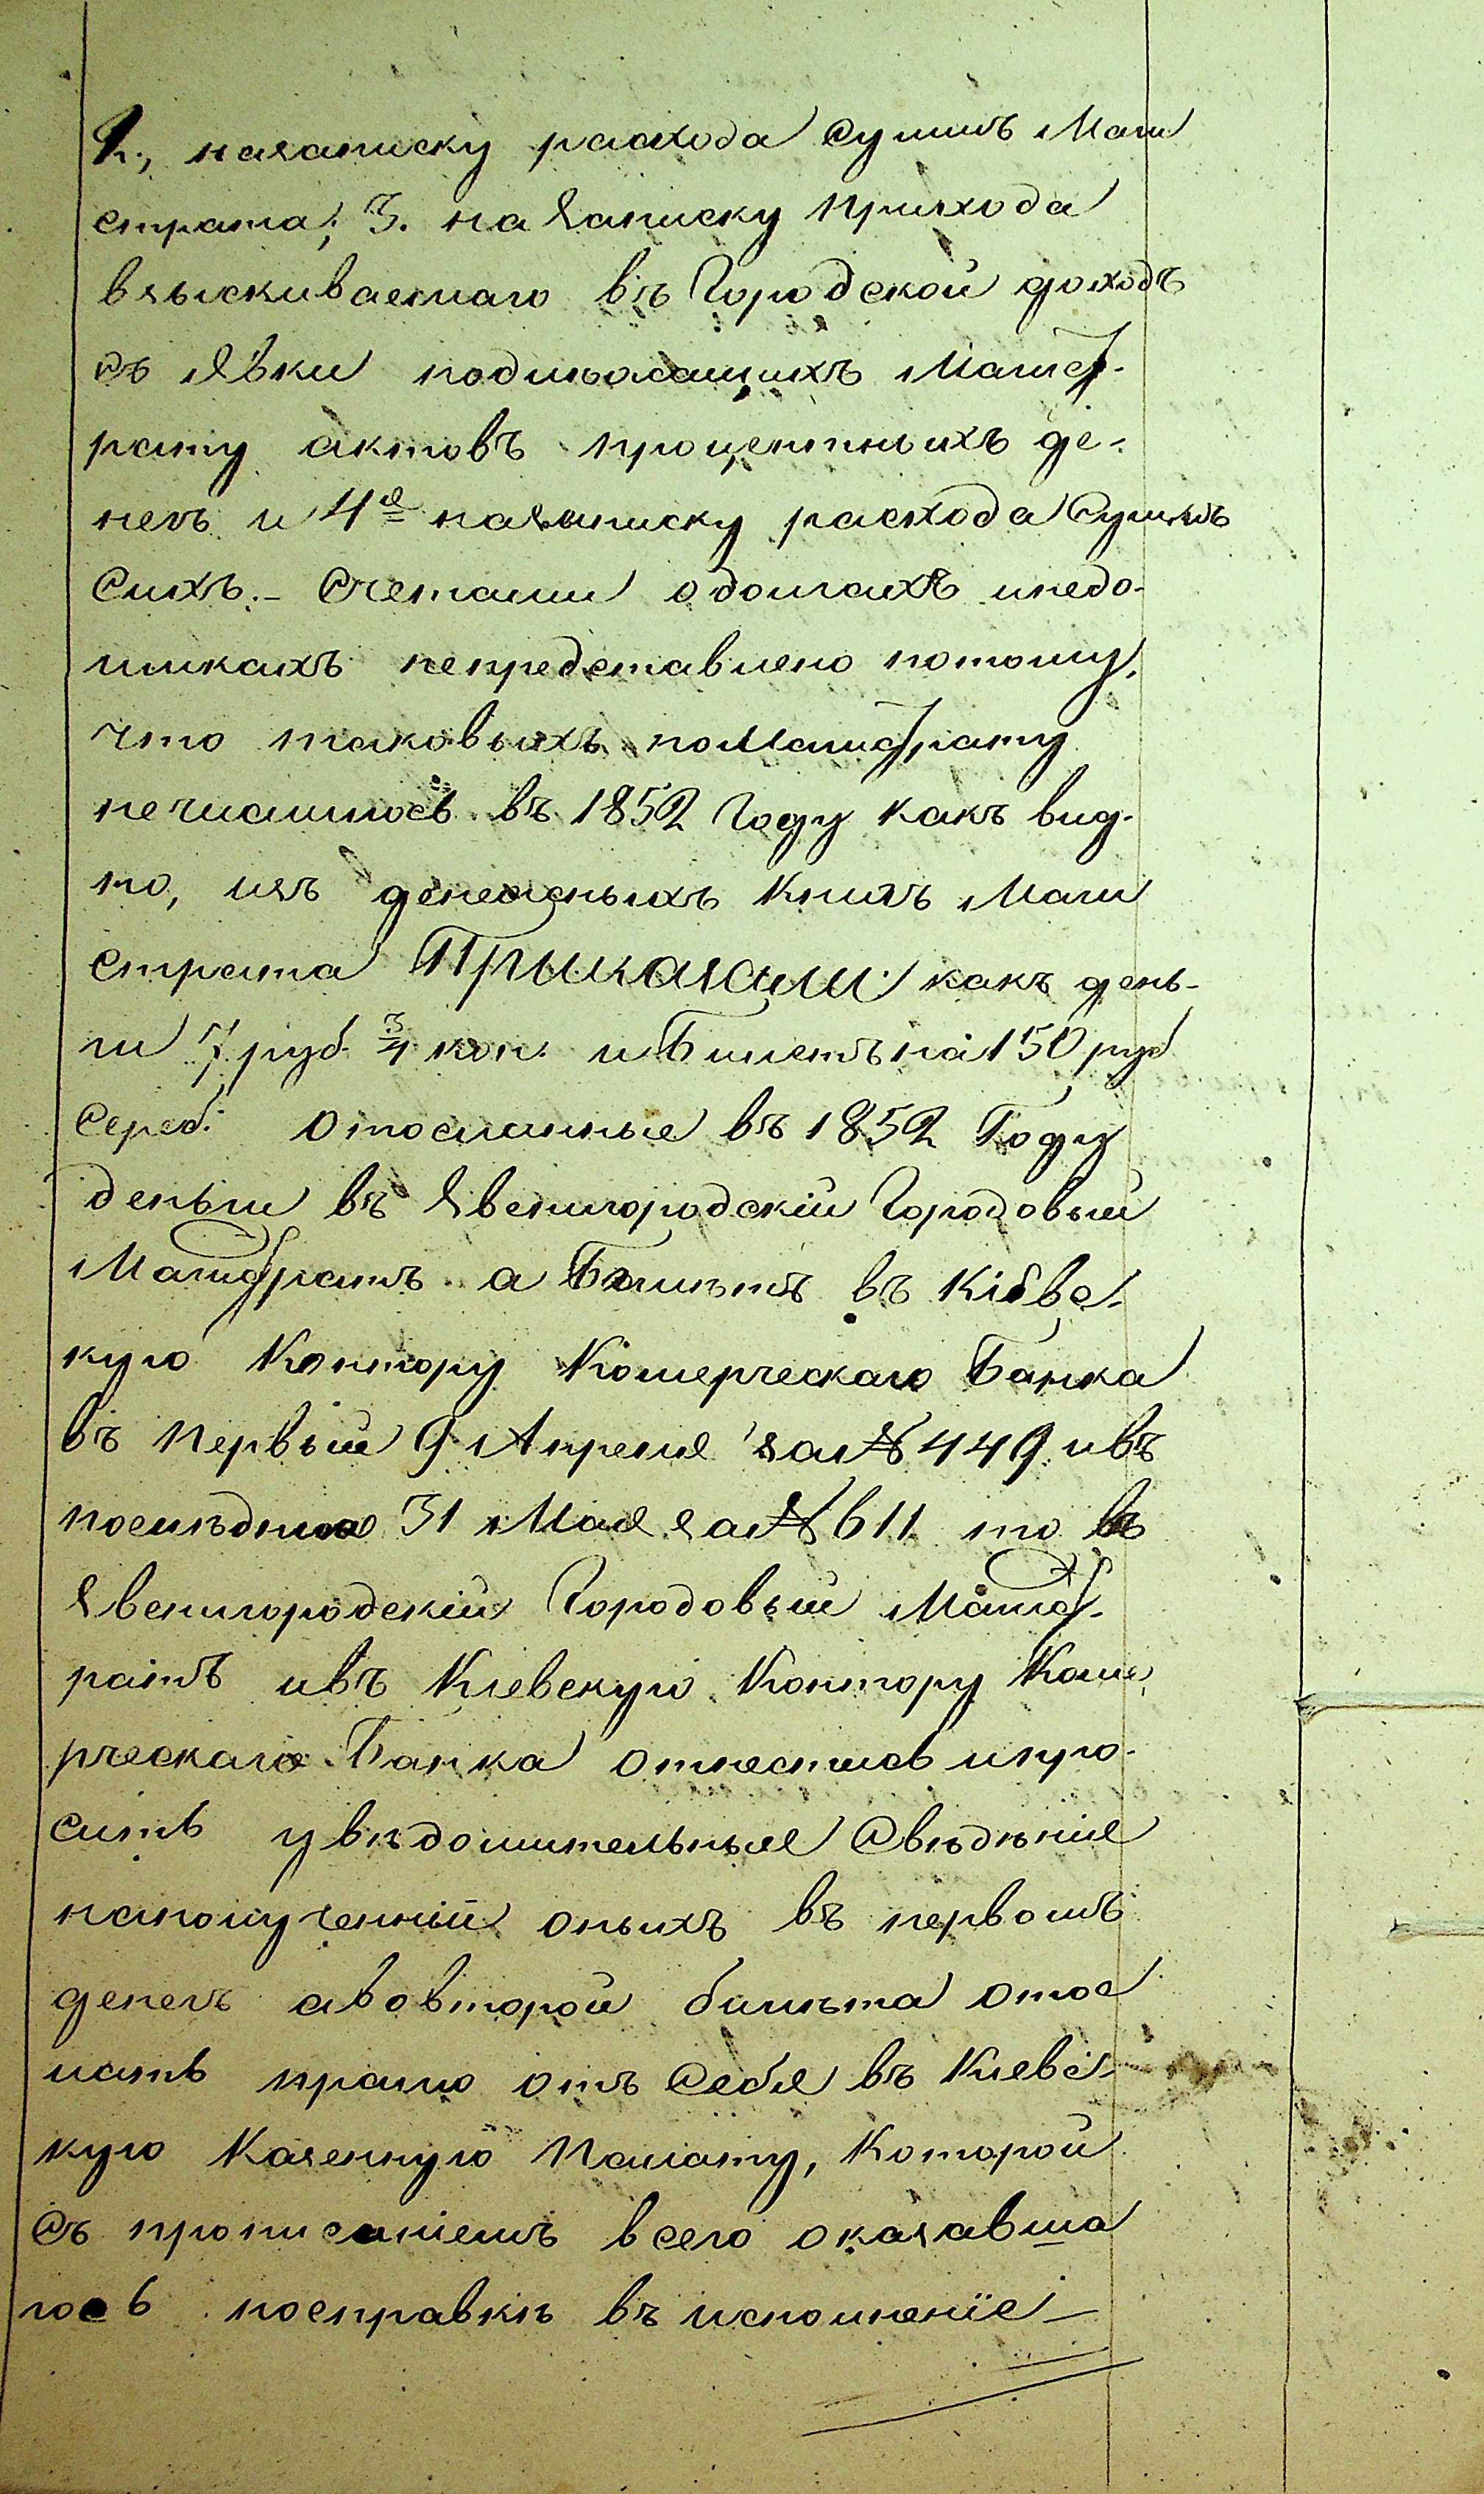 2, назаписку расхода Суммъ Маги
страта; 3. на Записку прихода
взыскиваемаго въ Городской доходъ
съ явки подлѣжащихъ Магист-
рату актовъ процентныхъ де-
негъ и 4я назаписку расхода Суммъ
Сихъ.- Счетами одолгахъ инедо-
имкахъ непредставлено потому,
что таковыхъ поМагистрату
нечислилось въ 1852 Году какъ вид-
но, изъ денежныхъ Книгъ Маги
страта Приказали: какъ день-
ги 7 руб. 3/4 коп. и Билетъ на 150 руб
Сереб: Отосланные въ 1852 Году
деньги въ Звенигородскій Городовый
Магистратъ а Билѣтъ въ Кіевс-
кую Контору Комерческаго Банка
въ Первый 9 Апреля за № 449 ивъ
послѣднюю 31 Мая за № 611 то въ
Звенигородскій Городовый Магист-
ратъ ивъ Киевскую Контору Коме
рческаго Банка отнестись ипро-
сить увѣдомительныя Свѣдѣния
наполучений оныхъ въ первомъ
денегъ авовторой билѣта отос
лать прямо отъ Себя въ Киевс-
кую Казенную Палату, Которой
Съ прописаниемъ всего оказавша
гось посправкѣ въ исполнение